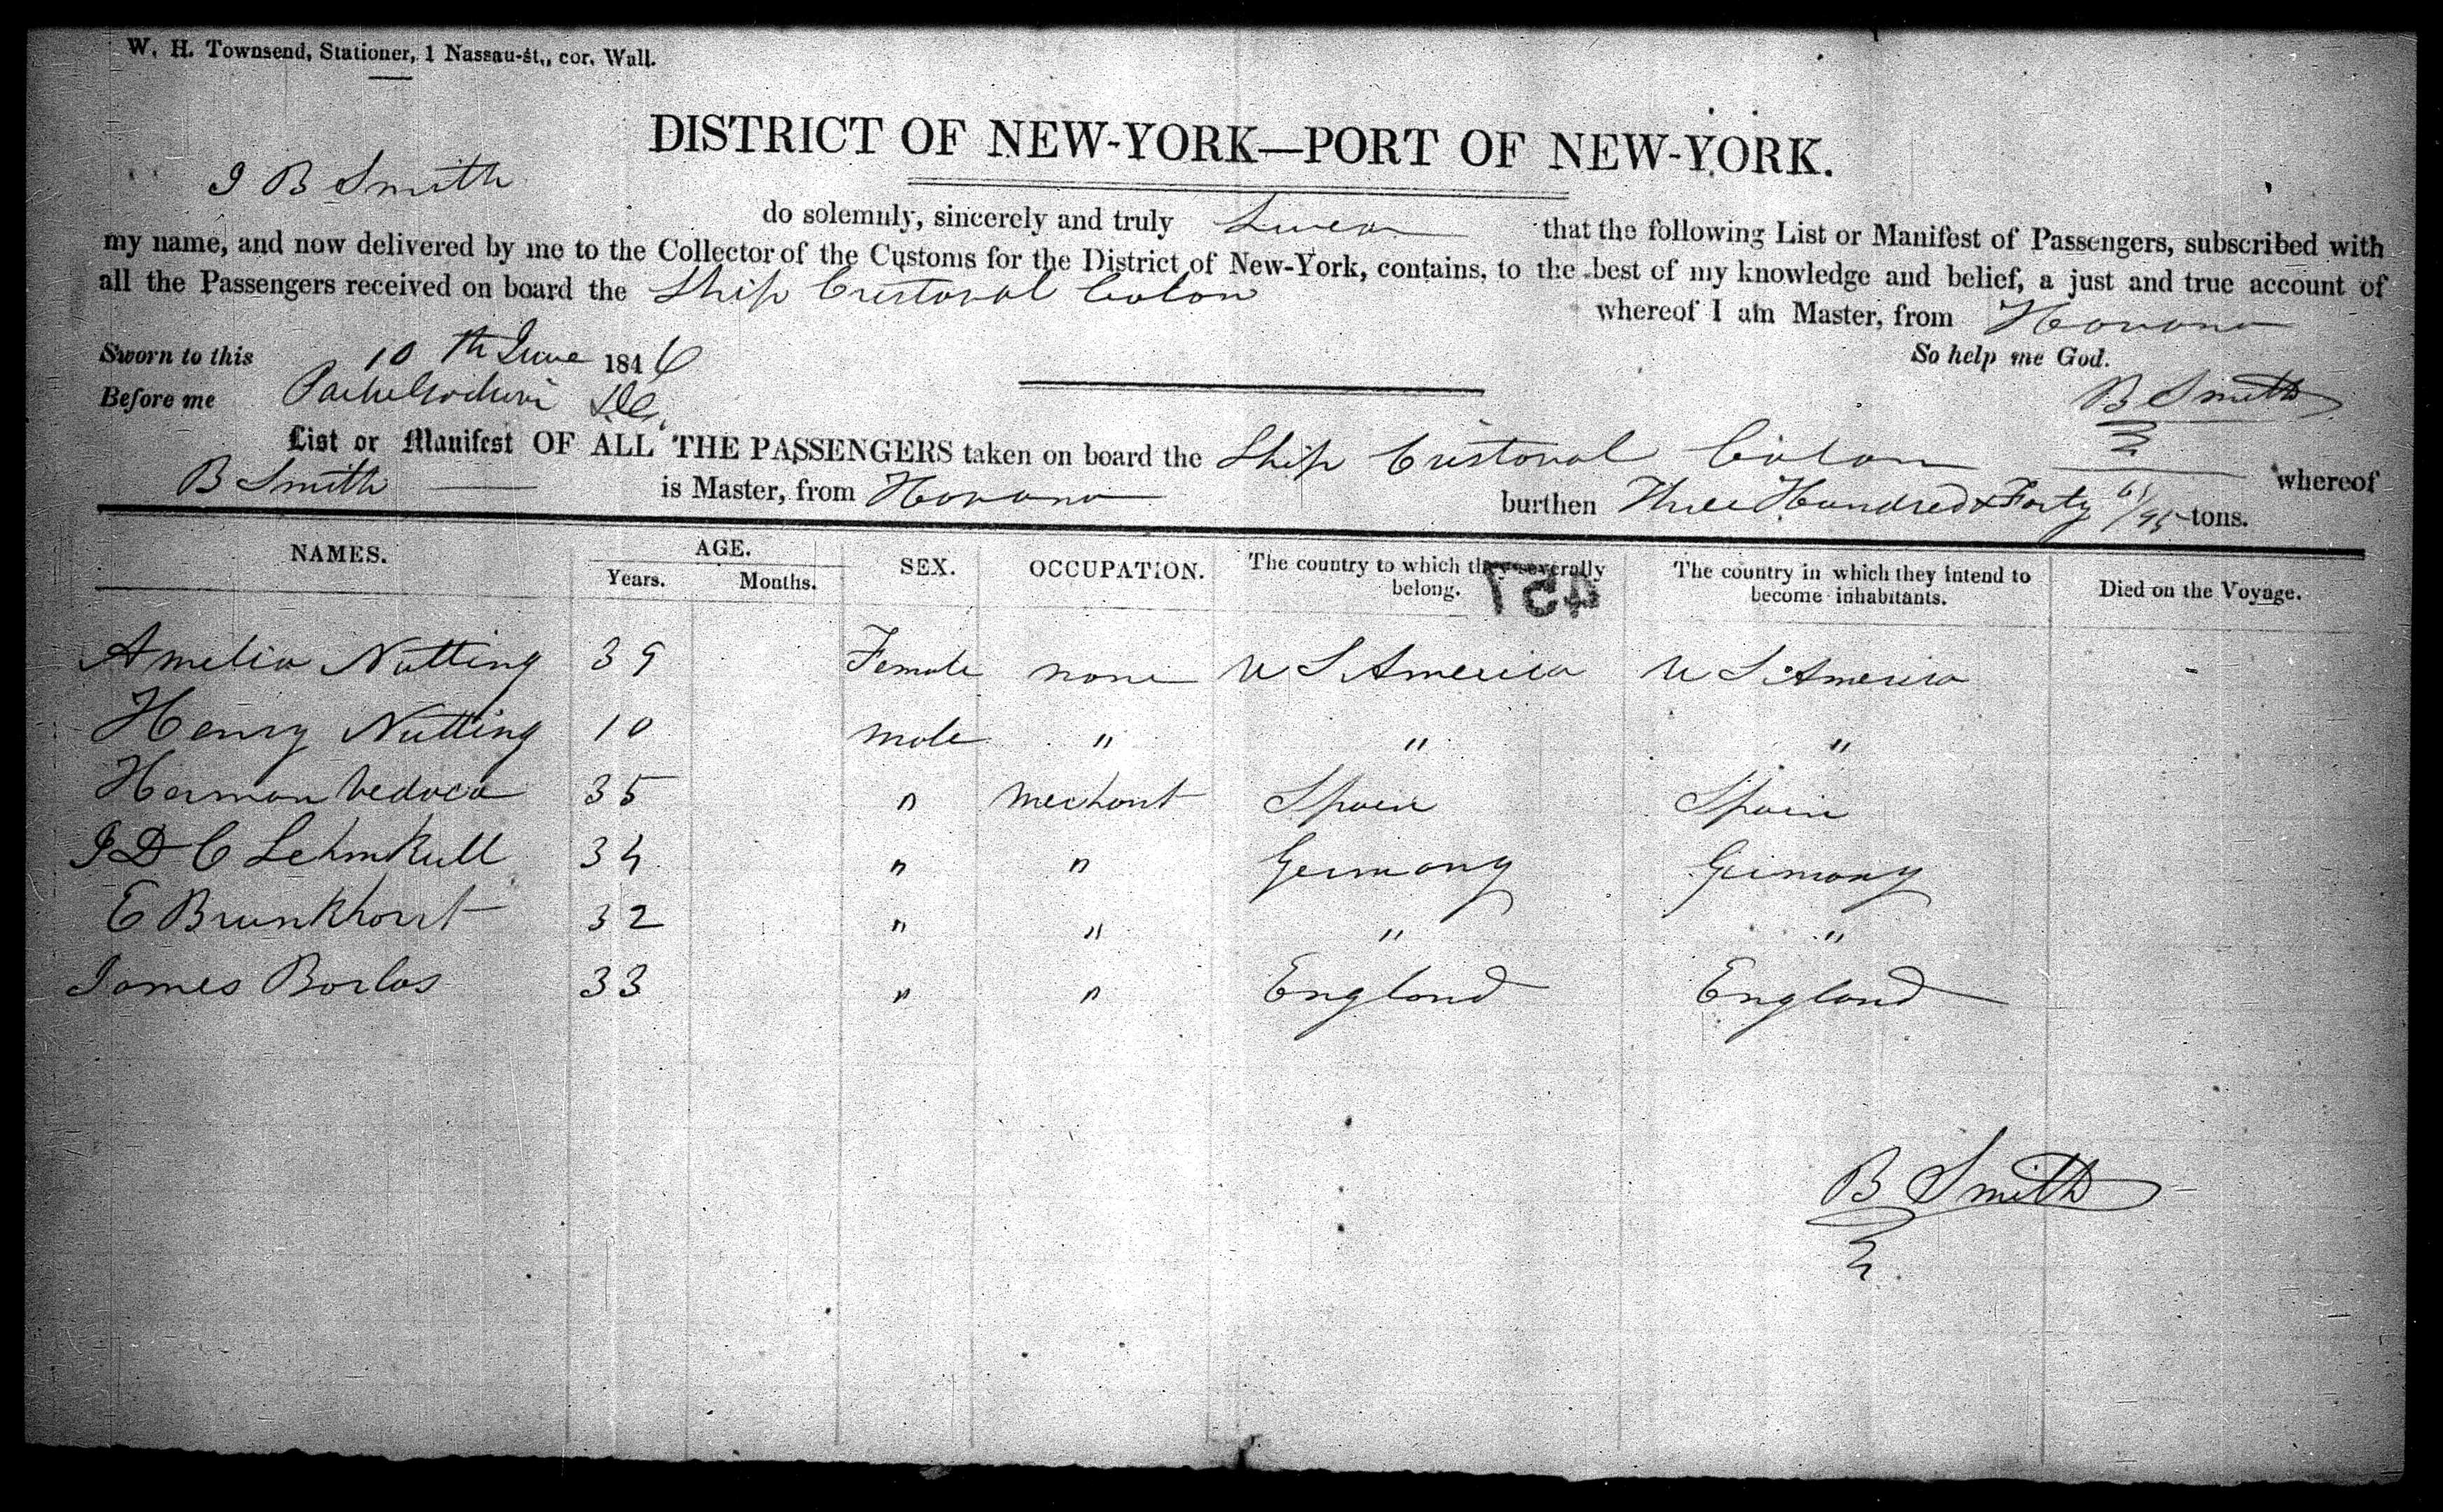 W. H. Townsend, Stationer, 1 Nassau-st., cor. Wall.
DISTRICT OF NEW-YORK—PORT OF NEW-YORK.
I B Smith do solemnly, sincerely and truly Swear that the following List or Manifest of Passengers, subscribed with
my name, and now delivered by me to the Collector of the Customs for the District of New-York, contains, to the best of my knowledge and belief, a just and true account of
all the Passengers received on board the Ship Cristoval Colon whereof I am Master, from Havana
So help me God.
Sworn to this 10th June 1846
B Smith
Before me
List or Manifest OF ALL THE PASSENGERS taken on board the Ship Cristoval Colon whereof
B Smith is Master, from Havana burthen Three Hundred & Forty 61/95 tons.
NAMES. AGE. SEX. OCCUPATION. The country to which they severally belong. The country in which they intend to become inhabitants. Died on the Voyage.
Years. Months.
457
Amelia Nutting 39 Female none U S America U S America -
Henry Nutting 10 male " " "
Herman 35 " Mechant Spain Spain
J D C Lehmkull 34 " " Germany Germany
E Brunkhorst 32 " " " "
James Borlas 33 " " England England
B Smith